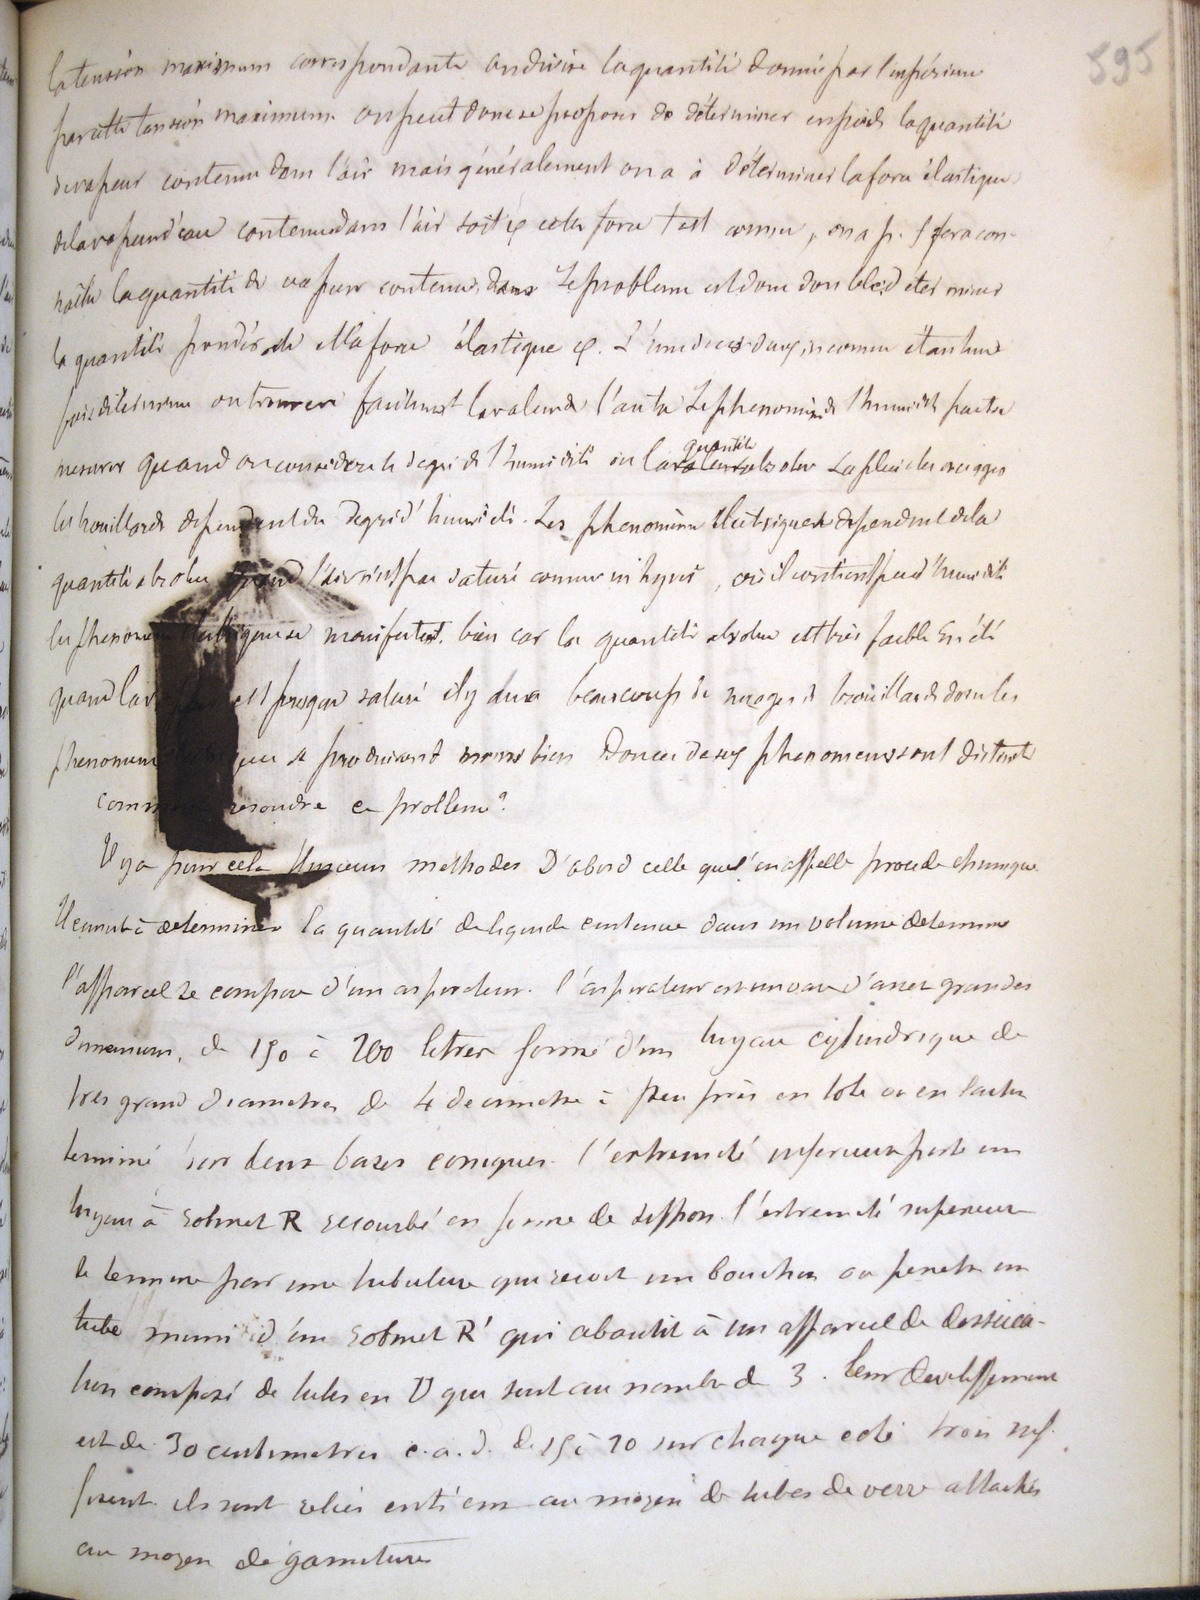 595
la tension maximum correspondante on divise la quantité donnée par l'expérience
par cette tension maximum. on peut donc se proposer de déterminer en poids la quantité
de vapeur contenue dans l'air mais généralement on a à déterminer la force élastique
de la vapeur d'eau contenue dans l'air soit φ cette force t est connu, on a p. f fera con-
naître la quantité de vapeur contenue dans Le problème est donc double déterminer
la quantité pondér de et la force élastique φ. L'une de ces deux inconnu étant une
fois déterminé on trouvera facilement la valeur de l'autre Le phenomène de l'humidité
mesurer quand on considère le degré de l'humidité ou la quantité absolue La pluie les orages
les brouillards dependent du degré d'humidité. Les phenomènes électriques dependent de la
quantité absolue quand l'air n'est pas saturé comme en hyver, où il contient peu d'humidité
les phenomènes électriques se manifestent bien car la quantité absolue est très faible En été
quand l'air est presque saturé il y aura beaucoup de nuages de brouillards donc les
phenomènes électriques se produiront moins bien Donc ces deux phenomenes sont distincts
comment resoudre ce problème?
Il y a pour cela plusieurs méthodes D'abord celle que l'on appelle procédé chimique
Il consiste à determiner la quantité de liquide contenue dans un volume determiné
l'appareil se compose d'un aspirateur. l'aspirateur est un vase d'assez grandes
dimensions, de 150 à 200 litres formé d'un tuyau cylindrique de
tres grand diametres de 4 decimetre à peu près en tole ou en laiton
terminé par deux bases coniques. l'extremité inferieure porte un
tuyau à robinet R recourbé en forme de siffon. l'extremité superieure
se termine par une tubulure qui recoit un bouchon ou penetre un
tube muni d'un robinet R' qui aboutit à un appareil de dessica-
tion composé de tubes en U qui sont au nombre de 3. leur developpement
est de 30 centimetres c.a.d. de 15 à 20 sur chaque coté trois suf-
fisent. ils sont reliés entr'eux au moyen de tubes de verre attachés
au moyen de garnitures